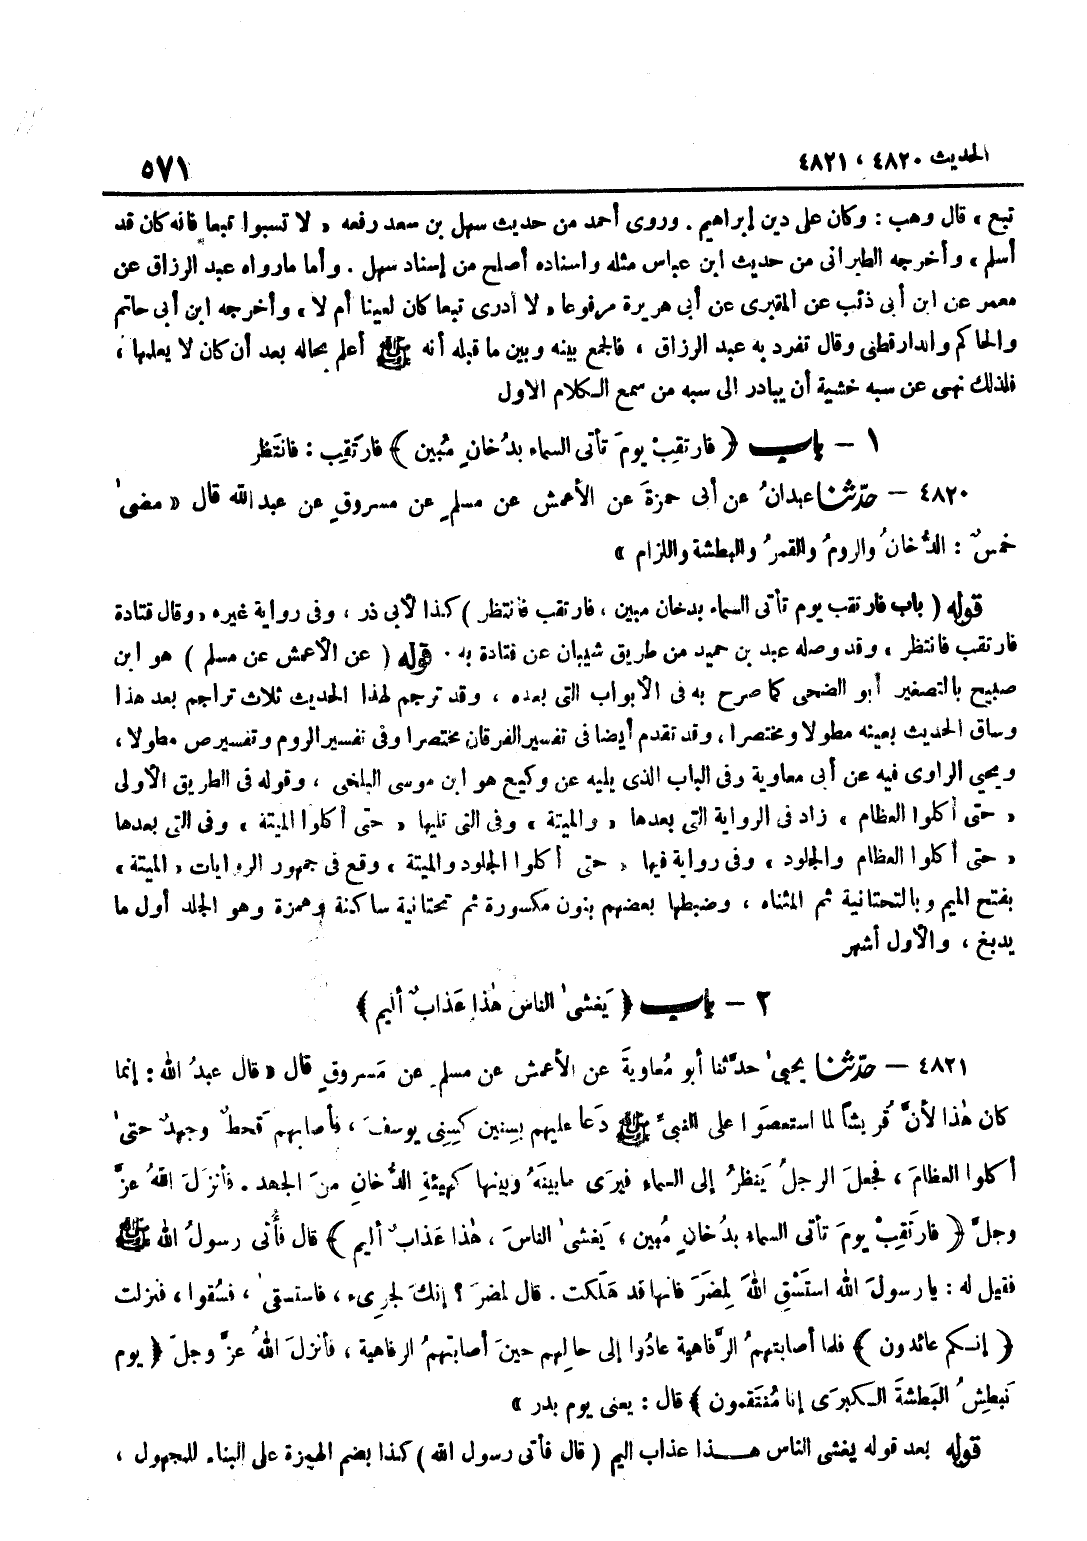 الحديث ٤٨٢٠ ، ٤٨٢١
٥٧١
تبع ، قال وهب : وكان على دين إبراهيم . وروى أحمد من حديث سهل بن سعد رفعه « لا تسبوا تبعا فانه كان قد
أسلم ، وأخرجه الطبرانى من حديث ابن عباس مثله واسناده أصلح من إسناد سهل . وأما مارواه عبد الرزاق عن
معمر عن ابن أبى ذئب عن المقبرى عن أبى هريرة مرفوعا « لا أدرى تبعا كان لعينا أم لا ، وأخرجه ابن أبى حاتم
والحاكم والدارقطنى وقال تفرد به عبد الرزاق ، فالجمع بينه وبين ما قبله أنه ﷺ أعلم بحاله بعد أن كان لا يعلمها ،
فلذلك نهى عن سبه خشية أن يبادر الى سبه من سمع الكلام الاول
١ – باب ﴿ فارتقِبْ يومَ تأتى السماء بدُخانٍ مُبين ﴾ فارتَقِب : فانتَظر
٤٨٢٠ – حدّثنا عبدانُ عن أبى حمزةَ عن الأعمش عن مسلمٍ عن مسروقٍ عن عبد الله قال « مضىٰ
خمسٌ : الدُّخانُ والرومُ والقمرُ والبطشة واللزام »
قوله ( باب فارتقب يوم تأتى السماء بدخان مبين ، فارتقب فانتظر ) كذا لأبى ذر ، وفى رواية غيره « وقال قتادة
فارتقب فانتظر ، وقد وصله عبد بن حميد من طريق شيبان عن قتادة به . قوله ( عن الأعمش عن مسلم ) هو ابن
صبيح بالتصغير أبو الضحى كما صرح به فى الأبواب التى بعده ، وقد ترجم لهذا الحديث ثلاث تراجم بعد هذا
وساق الحديث بعينه مطولا ومختصرا ، وقد تقدم أيضا فى تفسير الفرقان مختصرا وفى تفسير الروم وتفسير ص مطولا ،
ويحيى الراوى فيه عن أبى معاوية وفى الباب الذى يليه عن وكيع هو ابن موسى البلخى ، وقوله فى الطريق الأولى
« حتى أكلوا العظام ، زاد فى الرواية التى بعدها « والميتة ، وفى التى تليها « حتى أكلوا الميتة ، وفى التى بعدها
« حتى أكلوا العظام والجلود ، وفى رواية فيها « حتى أكلوا الجلود والميتة ، وقع فى جمهور الروايات « الميتة ،
بفتح الميم وبالتحتانية ثم المثناه ، وضبطها بعضهم بنون مكسورة ثم تحتانية ساكنة وهمزة وهو الجلد أول ما
يدبغ ، والأول أشهر
٢ – باب ﴿ يَغشىٰ الناسَ هٰذا عَذابٌ أليم ﴾
٤٨٢١ – حدّثنا يحيىٰ حدَّثنا أبو مُعاويةَ عن الأعمش عن مسلمٍ عن مَسروقٍ قال « قال عبدُ الله : إنما
كان هٰذا لأنَّ قُريشاً لما استعصَوا على النبىِّ ﷺ دَعا عليهم بسِنين كسِنِى يوسفَ ، فأصابهم قحطٌ وجهدٌ حتىٰ
أكلوا العظامَ ، فجعلَ الرجلُ يَنظرُ إلى السماء فيرَى مابينَهُ وبينها كهيئةِ الدُّخانِ منَ الجهد . فأنزلَ اللهُ عزَّ
وجلَّ ﴿ فارتَقِبْ يومَ تأتى السماء بدُخانٍ مُبين ، يَغشىٰ الناسَ ، هٰذا عَذابٌ أليم ﴾ قال فأُتى رسولُ الله ﷺ
فقيل له : يارسولَ الله استَسْقِ اللهَ لِمضَرَ فانها قد هَلَكت . قال لمضرَ ؟ إنكَ لجرِىء ، فاستسقىٰ ، فسُقوا ، فنزلت
﴿ إنكم عائدون ﴾ فلما أصابتهمُ الرَّفاهية عادُوا إلى حالِهم حينَ أصابتهمُ الرفاهية ، فأنزلَ اللهُ عزَّ وجلَّ ﴿ يوم
نَبطِشُ البَطشةَ الكبرَى إنا مُنتَقمون ﴾ قال : يعنى يوم بدر »
قوله بعد قوله يغشى الناس هذا عذاب اليم ( قال فأتى رسول الله ) كذا بضم الهمزة على البناء للمجهول ،